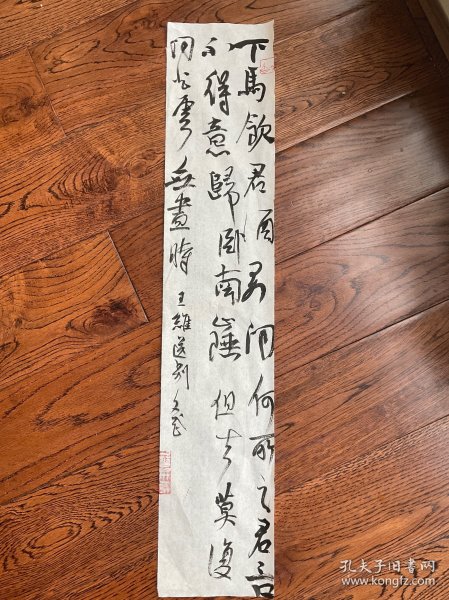 下馬飲君酒君问何所之君言
不得意歸卧南山陲但去莫復
问白雲無盡時 王維送别
孔夫子旧书网
www.kongfz.com